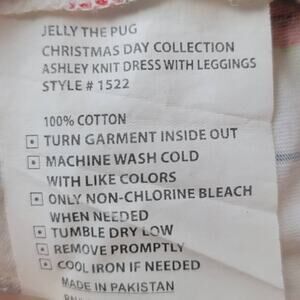 JELLY THE PUG
CHRISTMAS DAY COLLECTION
ASHLEY KNIT DRESS WITH LEGGINGS
STYLE # 1522
100% COTTON
TURN GARMENT INSIDE OUT
MACHINE WASH COLD
WITH LIKE COLORS
ONLY NON-CHLORINE BLEACH
WHEN NEEDED
TUMBLE DRY LOW
REMOVE PROMPTLY
COOL IRON IF NEEDED
MADE IN PAKISTAN